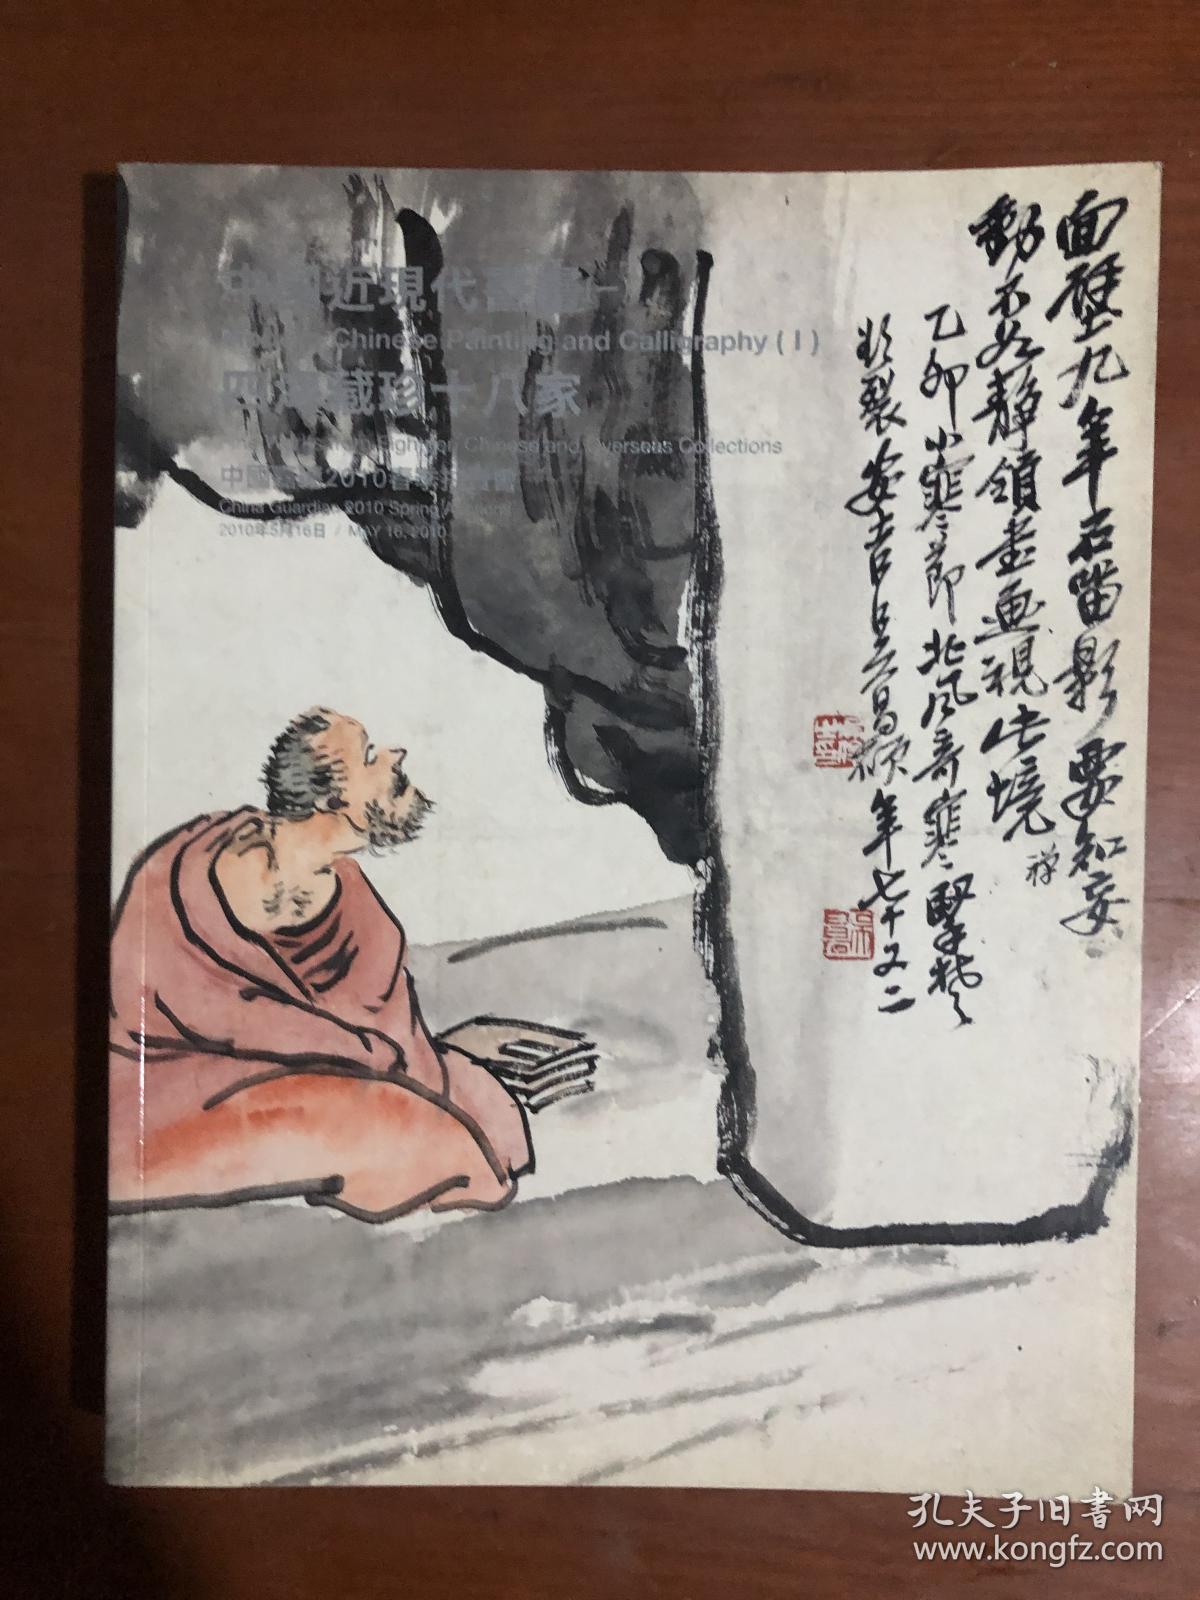 中國近現代書畫一
Modern Chinese Painting and Calligraphy (I)
四海藏珍十八家
Eighteen Chinese and Overseas Collections
中國嘉德2010春季拍賣會
China Guardian 2010 Spring Auctions
2010年5月16日 / MAY 16, 2010
面壁九年石留影要知妄
動不如靜領畫畫視此境
禅
乙卯小寒節北風奇寒堅冰
欲裂安吉吳昌碩年七十又二
孔夫子旧书网
www.kongfz.com